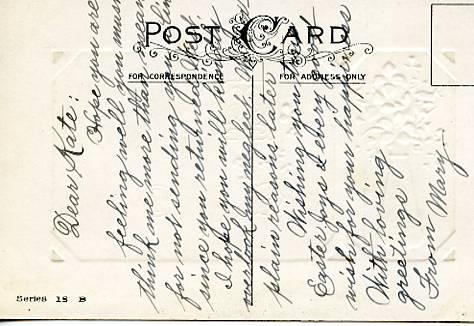 POST CARD
FOR CORRESPONDENCE
FOR ADDRESS ONLY
Dear Kate:
Hope you are
feeling well you must
think me more than mean
for not sending you
since you returned but
I hope you will
overlook my neglect
plain reasons later
Wishing you
Easter Joys & every
wish for your happiness
With loving
greetings
From Mary
Series 15 B